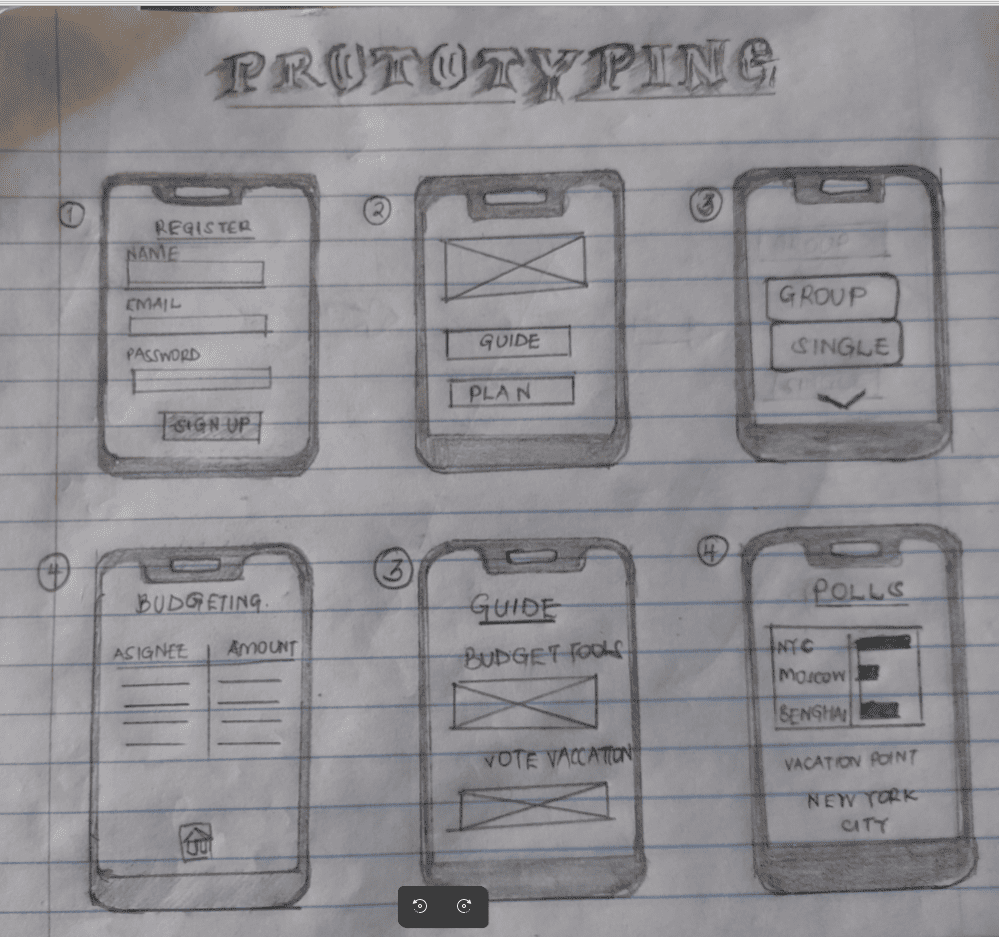 PROTOTYPING
1
REGISTER
NAME
EMAIL
PASSWORD
SIGN UP
2
GUIDE
PLAN
3
GROUP
GROUP
SINGLE
4
BUDGETING.
ASIGNEE AMOUNT
3
GUIDE
BUDGET TOOLS
VOTE VACCATION
4
POLLS
NYC
MOSCOW
BENGHAI
VACATION POINT
NEW YORK
CITY